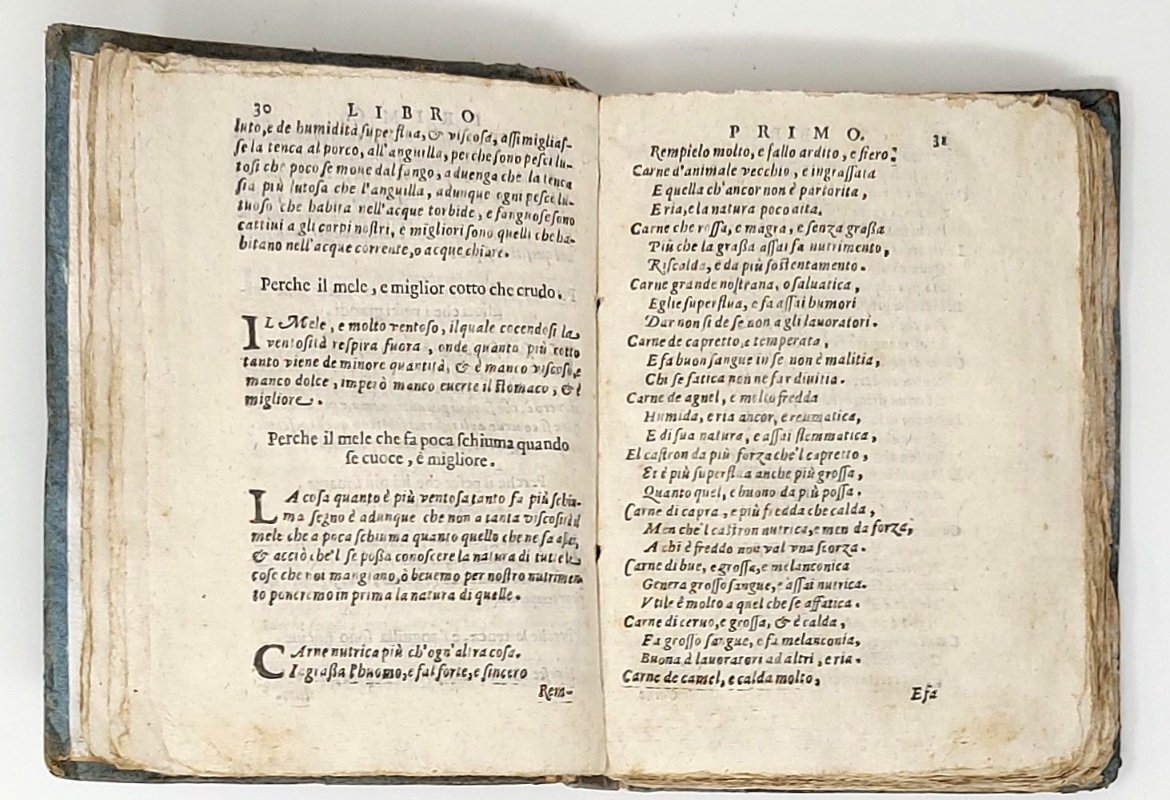 30 LIBRO
luto,e de humidità superflua, & viscosa, assimigliaſ-
ſe la tenca al porco, all'anguilla, perche ſono peſci lu-
toſi che poco ſe moue dal fango, aduenga che la tenca
ſia più lutoſa che l'anguilla, adunque ogni peſce lu-
tuoſo che habita nell'acque torbide, e fanguoſe ſono
cattiui a gli corpi noſtri, e migliori ſono quelli che ha-
bitano nell'acque corrente, o acque chiare.
Perche il mele, e miglior cotto che crudo.
IL Mele, e molto ventoſo, ilquale cocendoſi la
ventoſità reſpira fuora, onde quanto più cotto
tanto viene de minore quantità, & è manco viſcoſo, e
manco dolce, imperò manco euerte il ſtomaco, & è
migliore.
Perche il mele che fa poca ſchiuma quando
ſe cuoce, è migliore.
LA coſa quanto è più ventoſa tanto fa più ſchiu-
ma ſegno è adunque che non a tanta viſcoſità il
mele che a poca ſchiuma quanto quello che ne fa aſſai,
& acciò che'l ſe poſſa conoſcere la natura di tutte le
coſe che noi mangiano, ò beuemo per noſtro nutrimen
to poneremo in prima la natura di quelle.
CArne nutrica più ch'ogn'altra coſa.
Ingraſſa l'huomo, e fal forte, e ſincero
Rem-
PRIMO. 31
Rempielo molto, e fallo ardito, e fiero:
Carne d'animale vecchio, e ingraſſata
E quella ch'ancor non è partorita,
E ria, e la natura poco aita.
Carne che roſſa, e magra, e ſenza graſſa
Più che la graſſa aſſai fa nutrimento,
Riſcalda, e da più ſoſtentamento.
Carne grande noſtrana, o ſaluatica,
Egli e ſuperflua, e fa aſſai humori
Dar non ſi de ſe non a gli lauoratori.
Carne de capretto, e temperata,
E fa buon ſangue in ſe non è malitia,
Chi ſe fatica non ne far diuitia.
Carne de agnel, e molto fredda
Humida, e ria ancor, e reumatica,
E di ſua natura, e aſſai flemmatica,
El caſtron da più forza che'l capretto,
Et è più ſuperflua anche più groſſa,
Quanto quel, e buono da più poſſa.
Carne di capra, e più fredda che calda,
Men che'l caſtron nutrica, e men da forza,
A chi è freddo non val vna ſcorza.
Carne di bue, e groſſa, e melanconica
Genera groſſo ſangue, e aſſai nutrica.
Vtile è molto a quel che ſe affatica.
Carne di ceruo, e groſſa, & è calda,
Fa groſſo ſangue, e fa melanconia,
Buona à lauoratori ad altri, e ria.
Carne de camel, e calda molto,
E fa